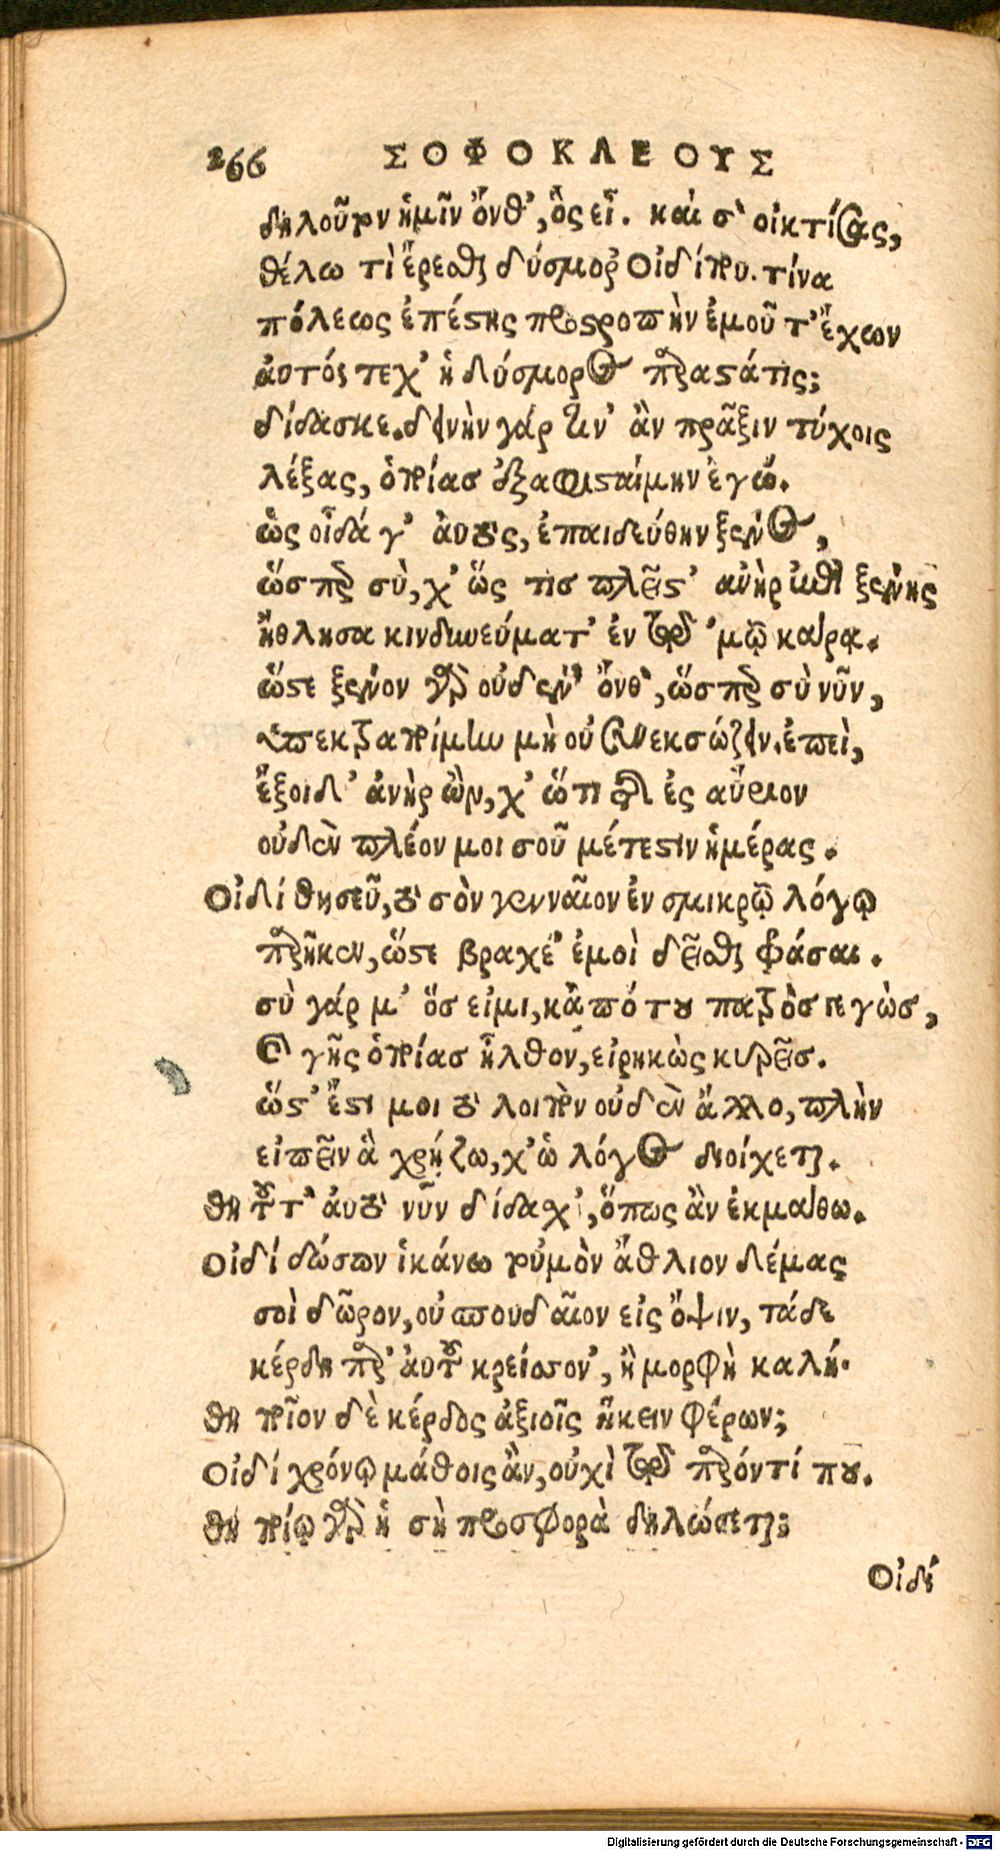 266 ΣΟΦΟΚΛΕΟΥΣ
δηλοῦτον ἡμῖν ὄνθ', ὃς εἶ. καί σ' οἰκτίσας,
θέλω τὶ ἔρεσθαι δύσμορ' Οἰδίπου. τίνα
πόλεως ἐπέστης προστροπὴν ἐμοῦ τ' ἔχων
ἀυτός τεχ' ἡ δύσμορος παραστάτις;
δίδασκε. δεινὴν γάρ τιν' ἂν πρᾶξιν τύχοις
λέξας, ὁποίας ἐξαφισταίμην ἐγώ.
ὡς οἶδά γ' ἀυτὸς, ἐπαιδεύθην ξένος,
ὥσπερ σὺ, χ' ὥς τις πλεῖστ' ἀνὴρ ἐπὶ ξένης
ἤθλησα κινδυνεύματ' ἐν τῷ 'μῷ κάρᾳ.
ὥστε ξένον γὰρ οὐδέν' ὄνθ', ὥσπερ σὺ νῦν,
ὑπεκτραποίμην μὴ οὐ συνεκσώζειν. ἐπεὶ,
ἔξοιδ' ἀνὴρ ὢν, χ' ὥτι τῆς ἐς αὔριον
οὐδὲν πλέον μοι σοῦ μέτεστιν ἡμέρας.
Οἰδί θησεῦ, τὸ σὸν γενναῖον ἐν σμικρῷ λόγῳ
παρῆκεν, ὥστε βραχέ' ἐμοὶ δεῖσθαι φάσαι.
σὺ γάρ μ' ὅς εἰμι, κἀπό του πατρὸς γεγὼς,
καὶ γῆς ὁποίας ἦλθον, εἰρηκὼς κυρεῖς.
ὥστ' ἔστι μοι τὸ λοιπὸν οὐδὲν ἄλλο, πλὴν
εἰπεῖν ἃ χρῄζω, χ' ὡ λόγος διοίχεται.
θη τοῦτ' ἀυτὸ νῦν δίδαχ', ὅπως ἂν ἐκμάθω.
Οἰδί δώσων ἱκάνω τοὐμὸν ἄθλιον δέμας
σοὶ δῶρον, οὐ σπουδαῖον εἰς ὄψιν, τάδε
κέρδη παρ' ἀυτοῦ κρείσσον', ἢ μορφὴ καλή.
θη ποῖον δὲ κέρδος ἀξιοῖς ἥκειν φέρων;
Οἰδί χρόνῳ μάθοις ἂν, οὐχὶ τῷ παρόντί που.
θη ποίῳ γὰρ ἡ σὴ προσφορὰ δηλώσεται;
Οἰδί
Digitalisierung gefördert durch die Deutsche Forschungsgemeinschaft - DFG